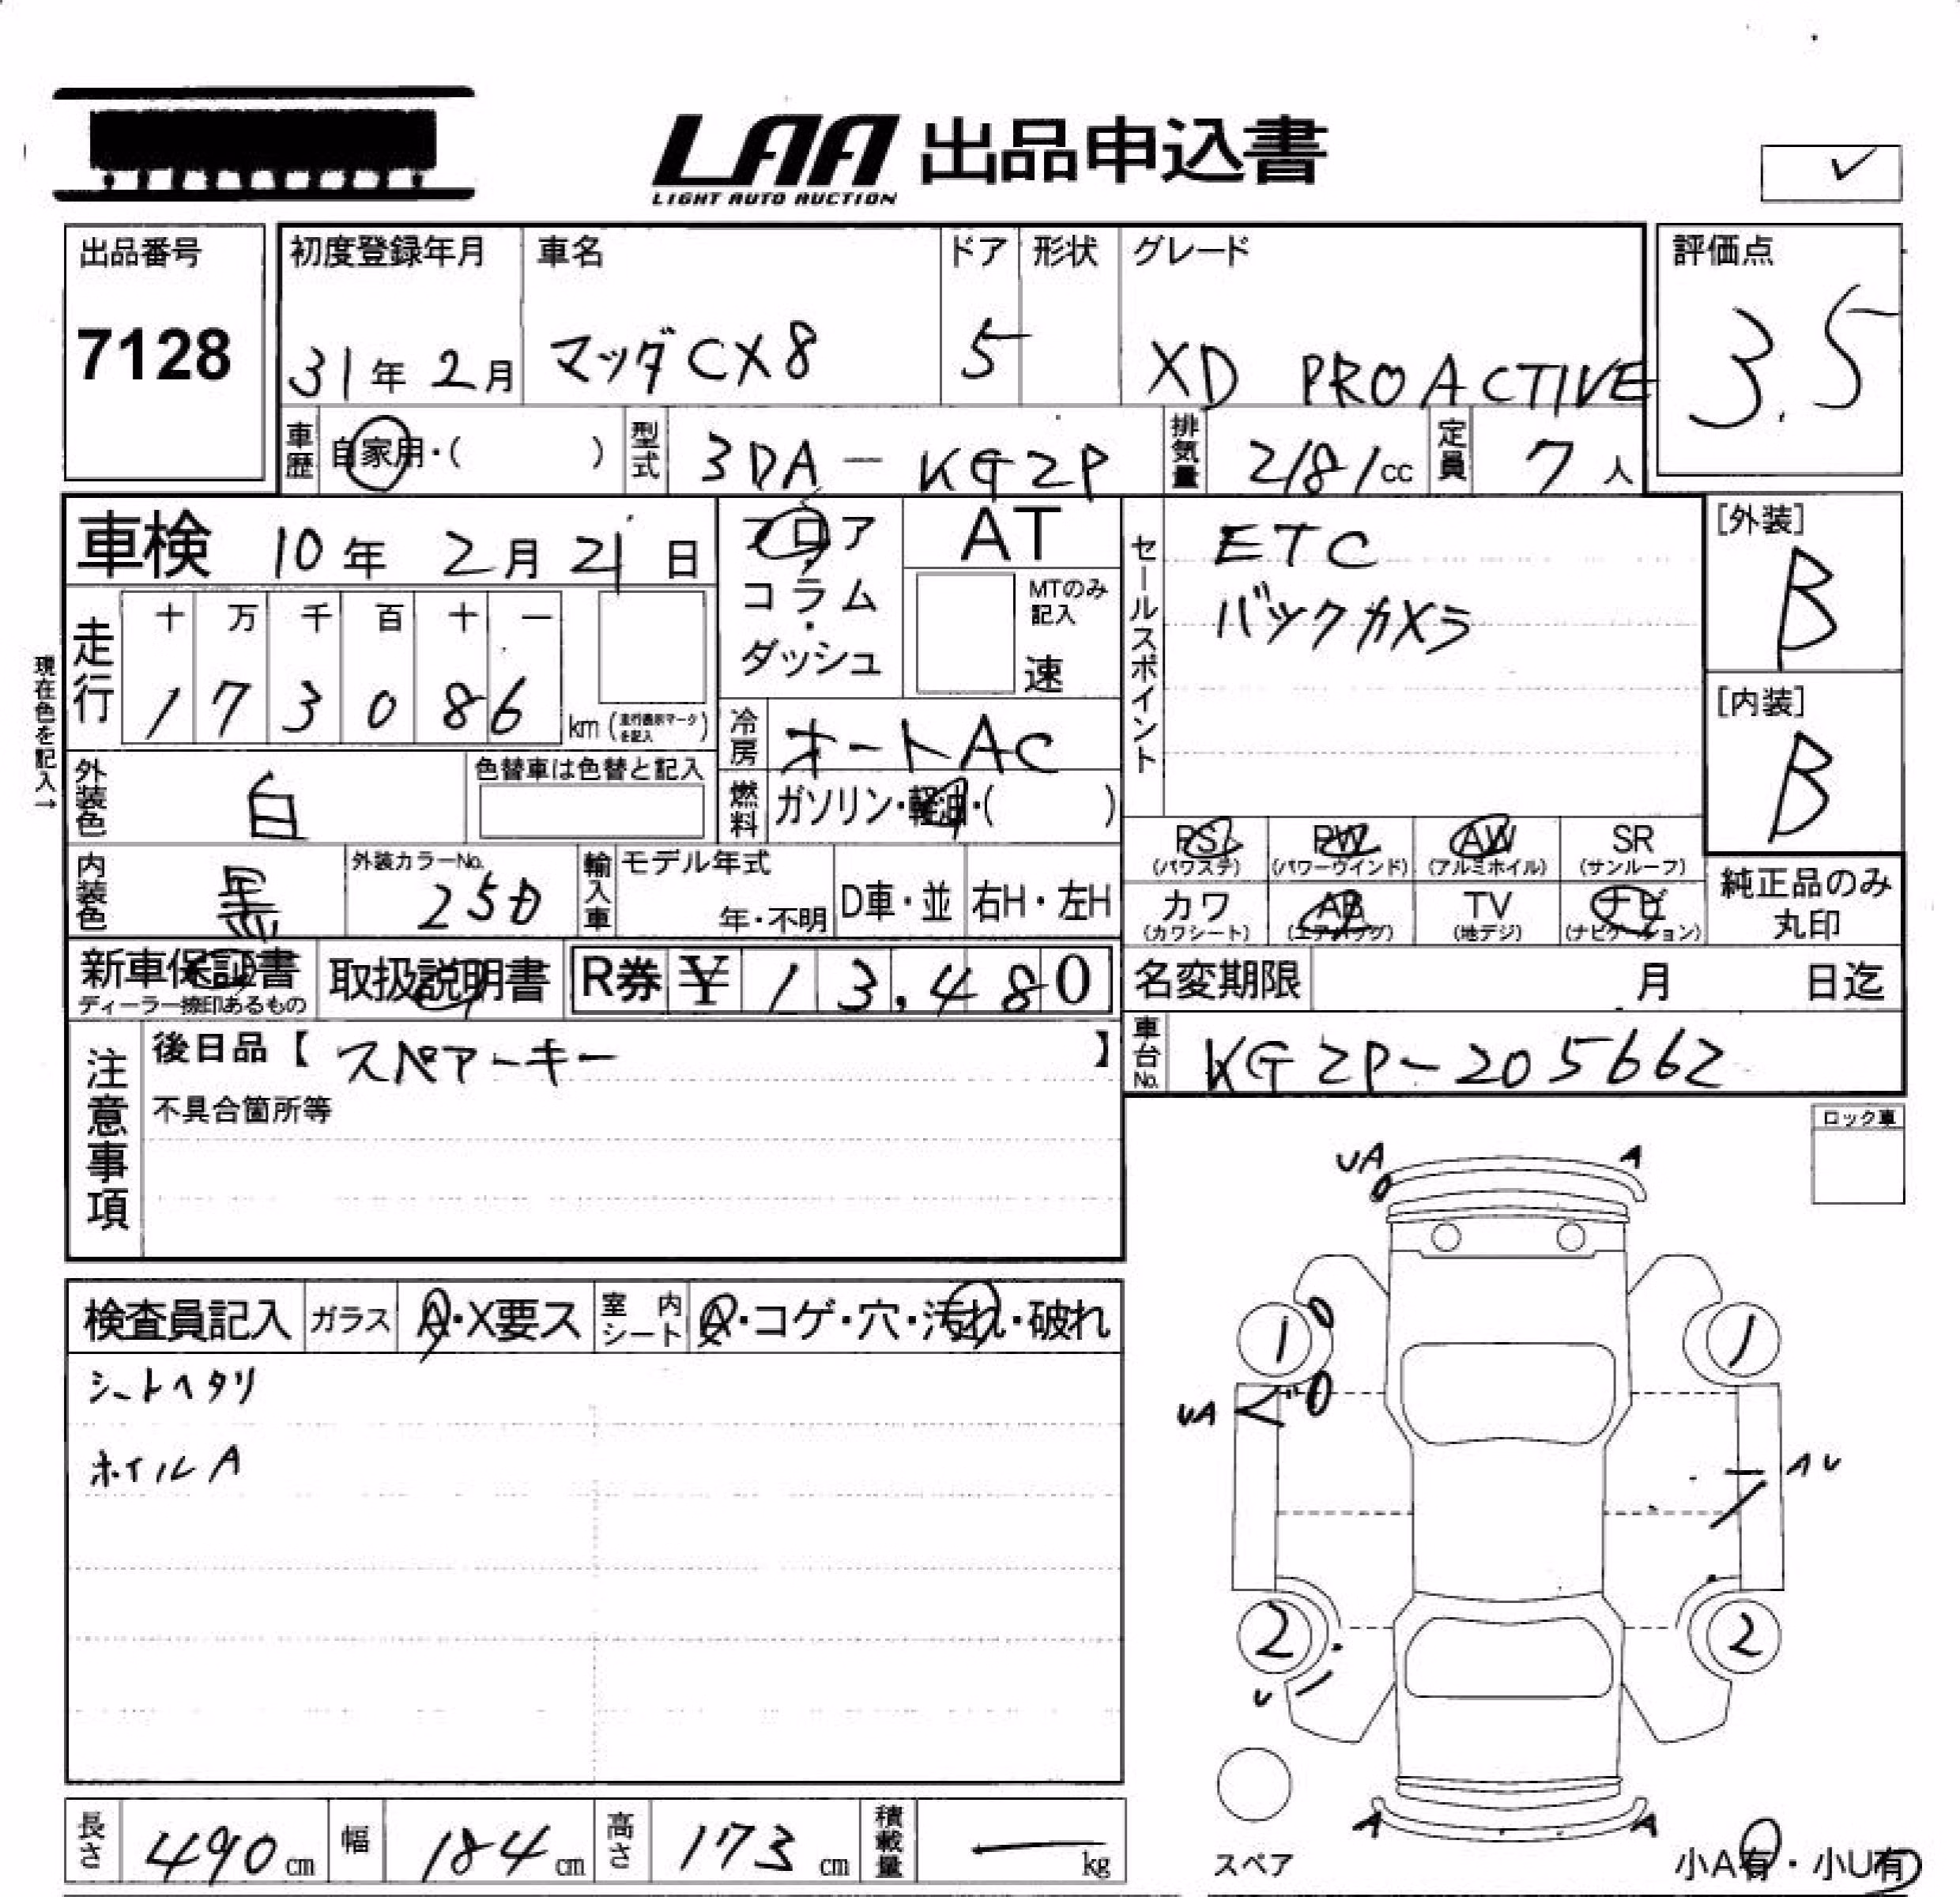 LAA 出品申込書
LIGHT AUTO AUCTION
✓
出品番号
7128
初度登録年月
31年 2月
車名
マツダ CX8
ドア
5
形状
グレード
XD PROACTIVE
評価点
3.5
車歴
自家用・( )
型式
3DA-KG2P
排気量
2181cc
定員
7人
車検 10年 2月 21日
フロア
コラム
・
ダッシュ
AT
MTのみ
記入
速
セールスポイント
ETC
バックカメラ
[外装]
B
[内装]
B
現在色を記入→
走行
十 万 千 百 十 一
1 7 3 0 8 6
km(走行表示マークを記入)
冷房
オートAC
燃料
ガソリン・軽油・( )
外装色
白
色替車は色替と記入
内装色
黒
外装カラーNo.
25D
輸入車
モデル年式
年・不明
D車・並
右H・左H
PS
(パワステ)
PW
(パワーウインド)
AW
(アルミホイル)
SR
(サンルーフ)
カワ
(カワシート)
AB
(エアバッグ)
TV
(地デジ)
ナビ
(ナビゲーション)
純正品のみ
丸印
新車保証書
ディーラー捺印あるもの
取扱説明書
R券 ¥ 1 3,4 8 0
名変期限 月 日迄
注意事項
後日品【 スペアーキー 】
不具合箇所等
車台No.
KG2P-205662
ロック車
検査員記入
ガラス
A・X要ス
室内シート
A・コゲ・穴・汚れ・破れ
シートヘタリ
ホイルA
UA
A
1
1
UA
AU
2
2
U
A
A
スペア
小A有・小U有
長さ
490cm
幅
184cm
高さ
173cm
積載量
—kg